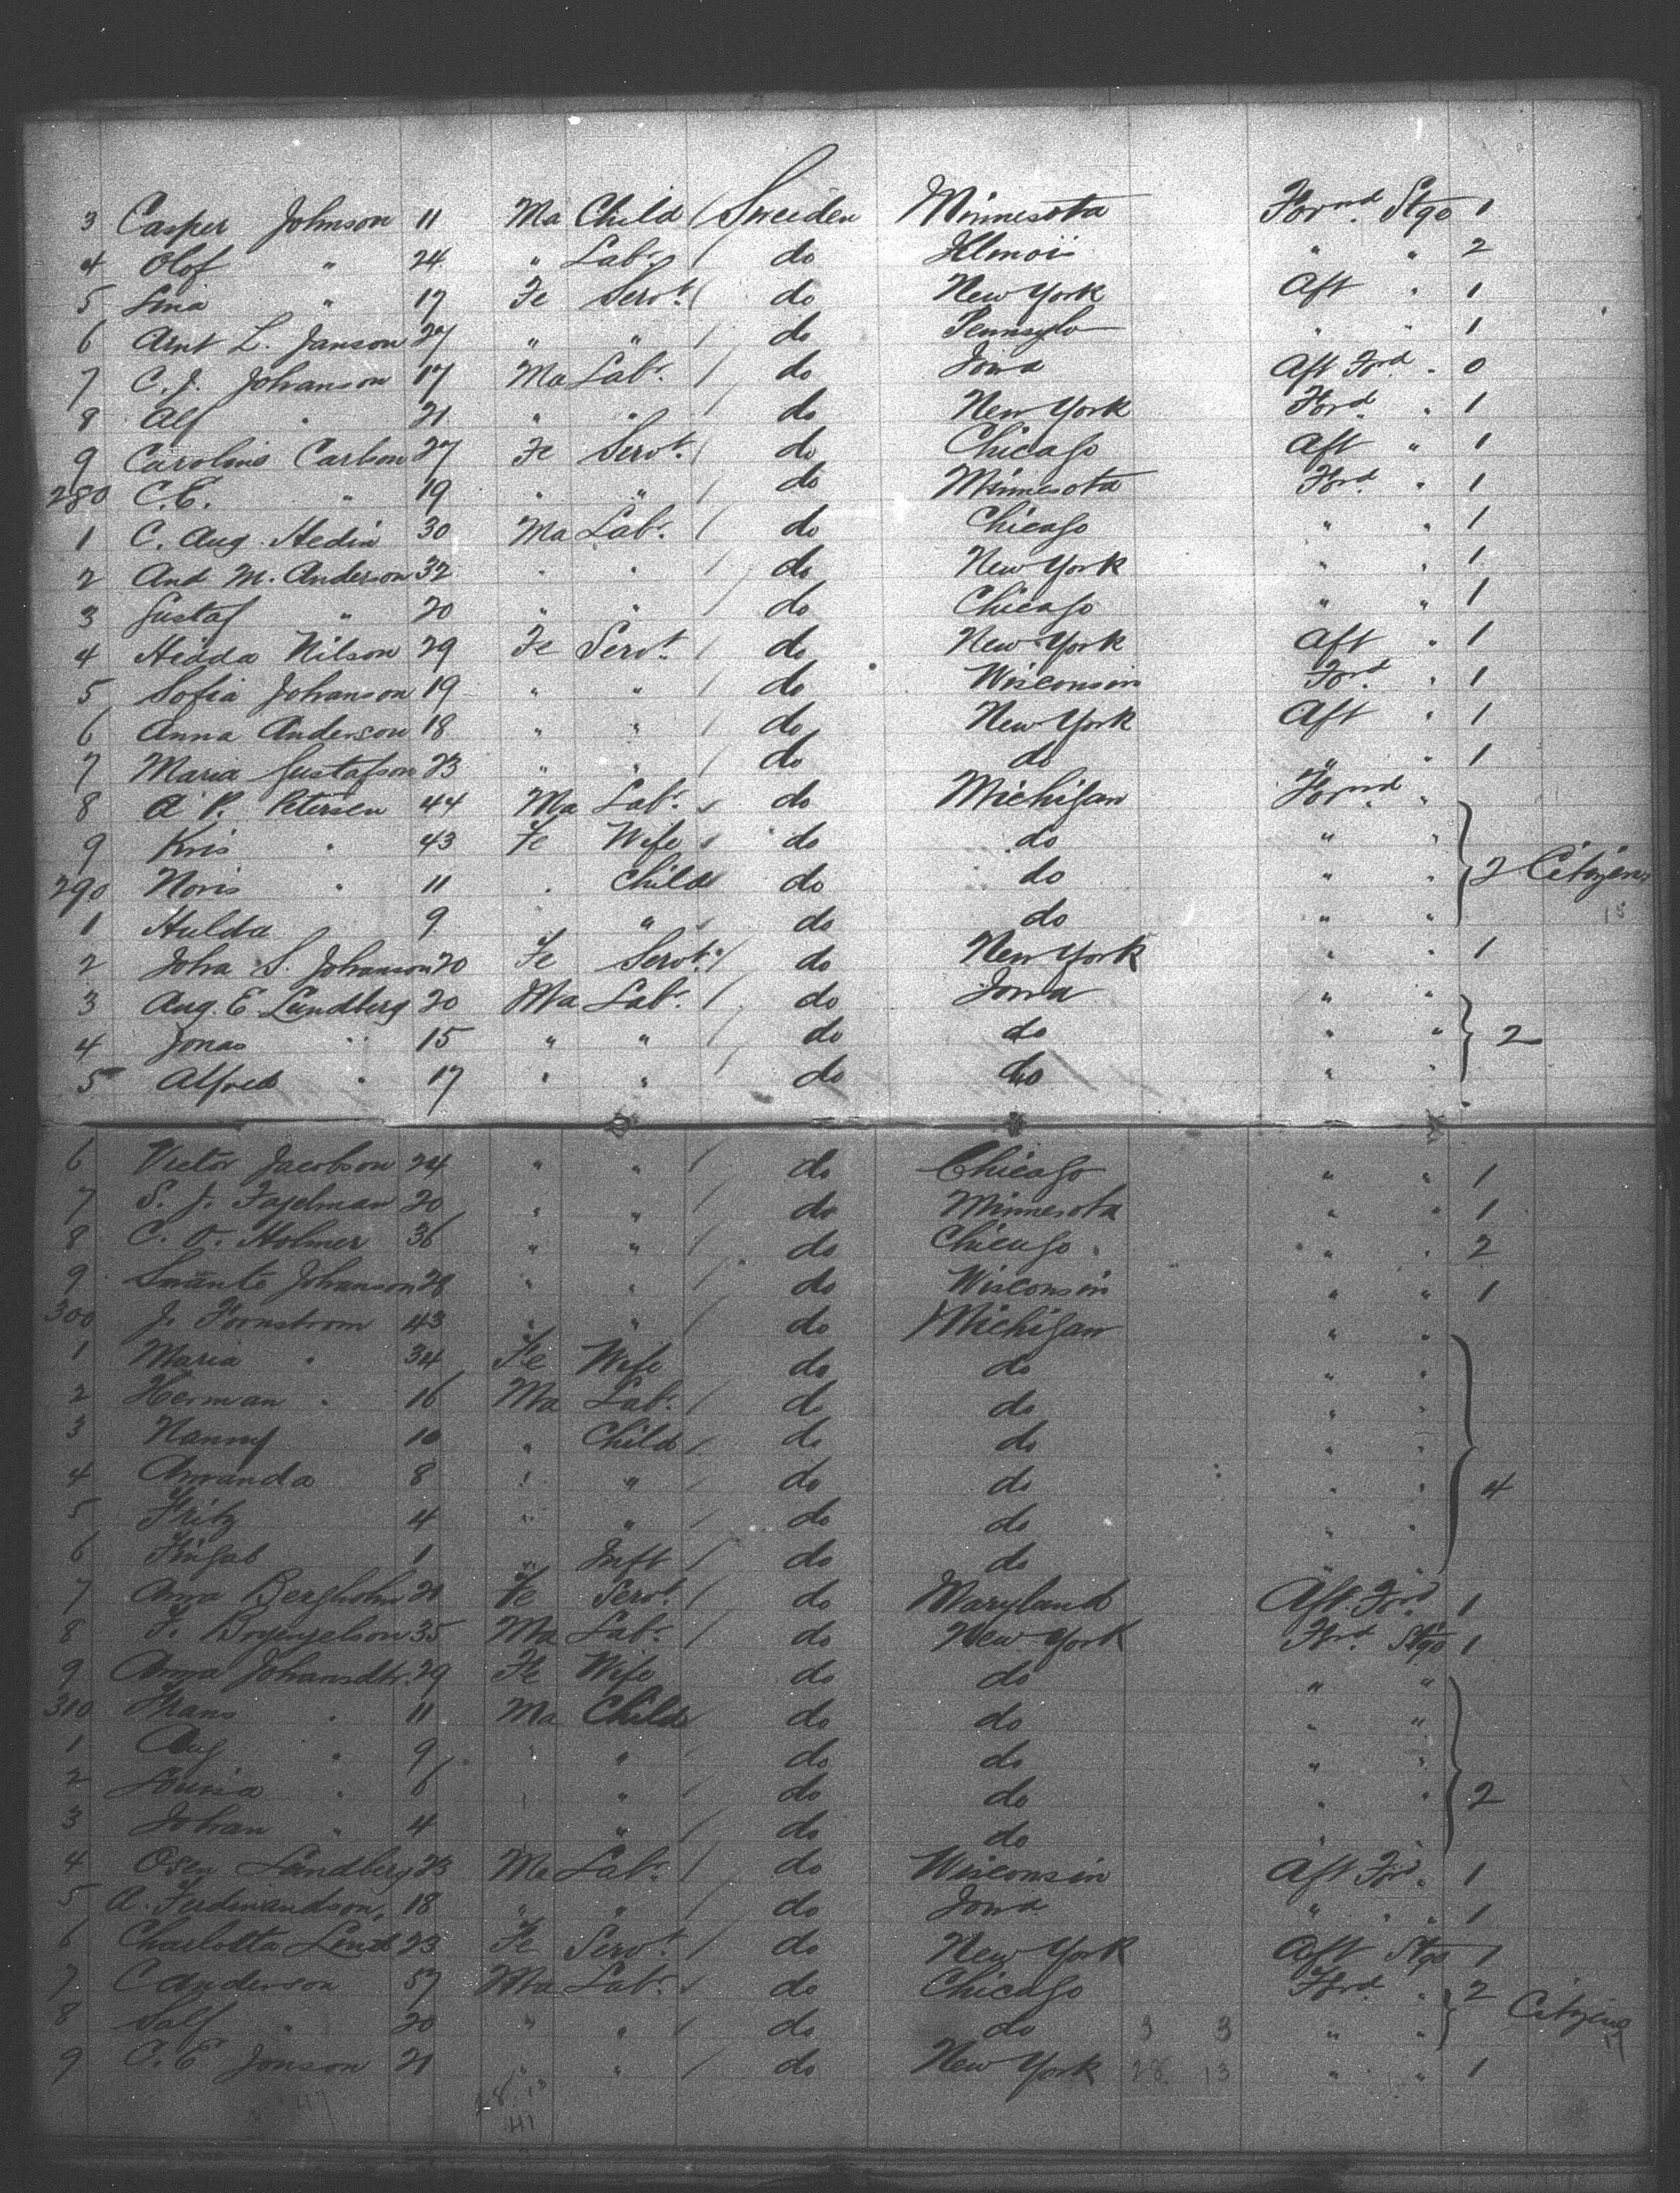 3 Casper Johnson 11 Ma Child / Sweeden Minnesota Forwd. Stge 1
4 Olof " 24 " Labr. / do Illinois " " 2
5 Lina " 17 Fe Servt. / do New York Aft " 1
6 Arnt L. Janson 27 " " / do Pennsylv " " 1
7 C. J. Johanson 17 Ma Labr. / do Iowa Aft Ford. " 0
8 Alf " 21 " " / do New York Ford. " 1
9 Caroline Carlson 27 Fe Servt. / do Chicago Aft " 1
280 C. E. " 19 " " / do Minnesota Ford. " 1
1 C. Aug. Hedin 30 Ma Labr. / do Chicago " " 1
2 And M. Anderson 32 " " / do New York " " 1
3 Gustaf " 20 " " / do Chicago " " 1
4 Hidda Nilson 29 Fe Servt. / do New York Aft " 1
5 Sofia Johanson 19 " " / do Wisconsin Ford. " 1
6 Anna Anderson 18 " " / do New York Aft " 1
7 Maria Gustafson 23 " " / do do " " 1
8 A P. Petersen 44 Ma Labr. do Michigan Forwd. "
9 Kris " 43 Fe Wife do do " "
290 Noris " 11 " Child do do " " 2 Citizens
1 Hulda 9 " do do " " 15
2 Joha S. Johanson 20 Fe Servt. / do New York " " 1
3 Aug. E. Lundberg 20 Ma Labr. / do Iowa " "
4 Jonas " 15 " " / do do " " 2
5 Alfred " 17 " " / do do " "
6 Victor Jacobson 24 " " / do Chicago " " 1
7 S. J. Fagelman 20 " " / do Minnesota " " 1
8 C. O. Holmer 36 " " / do Chicago " " 2
9 Swante Johanson 28 " " / do Wisconsin " " 1
300 J. Fornstrom 43 " " / do Michigan " "
1 Maria " 34 Fe Wife do do " "
2 Herman " 16 Ma Labr. / do do " "
3 Nanny 10 " Child / do do " "
4 Amanda 8 " " / do do " " 4
5 Fritz 4 " " / do do " "
6 Fingal 1 " Inft / do do " "
7 Anna Bergholm 21 Fe Servt. / do Maryland Aft. Ford 1
8 F. 35 Ma Labr. / do New York Ford. Stge 1
9 Anna Johansdtr. 29 Fe Wife do do " "
310 Hans " 11 Ma Child do do " "
1 Aug " 9 " " / do do " "
2 Louisa " 6 " " / do do " " 2
3 Johan " 4 " / do do " "
4 Lundberg 23 Ma Labr. / do Wisconsin Aft Ford. " 1
5 A. Ferdinandson 18 " " / do Iowa " " " 1
6 Charlotta Lind 23 Fe Servt. / do New York Aft Stge 1
7 C Anderson 57 Ma Labr. do Chicago Ford. " 2 Citizens
8 Salf " 20 " " / do do 3 3 " " 17
9 C. E Jonson 21 " " / do New York 28 13 " " 1
41